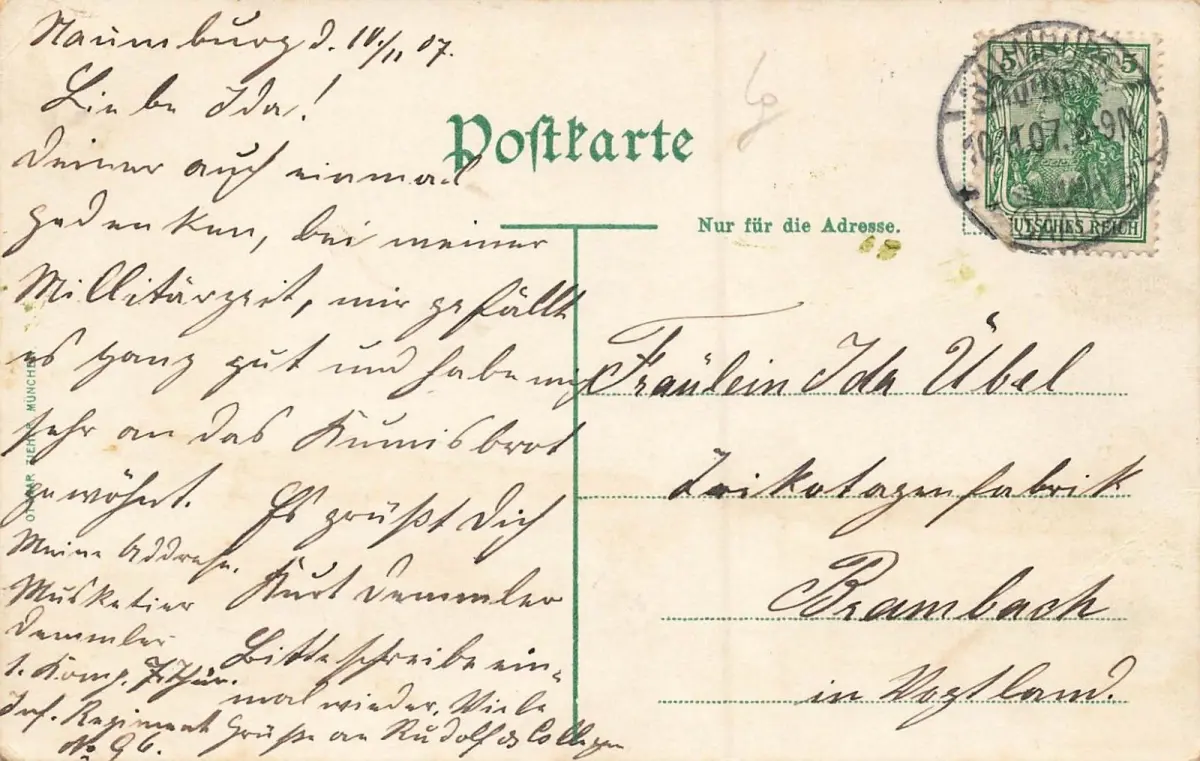 Naumburg d. 10./11. 07.
Liebe Ida!
Deiner auch einmal
gedenken, bei meiner
Millitärzeit, mir gefällt
es ganz gut und habe mich
sehr an das Kumisbrot
gewöhnt. Es grüßt Dich
Kurt Demmler
Bitte schreibe ein-
mal wieder. Viele
Grüße an Rudolf & Collegen
Meine Addresse.
Musketier
Demmler
1. Komp. 7. Thür.
Inf. Regiment
No 96.
Postkarte
Nur für die Adresse.
5 5
10.11.07. 8-9N.
DEUTSCHES REICH
Fräulein Ida Übel
Trikotagenfabrik
Brambach
in Vogtland.
OTTMAR ZIEHER MÜNCHEN